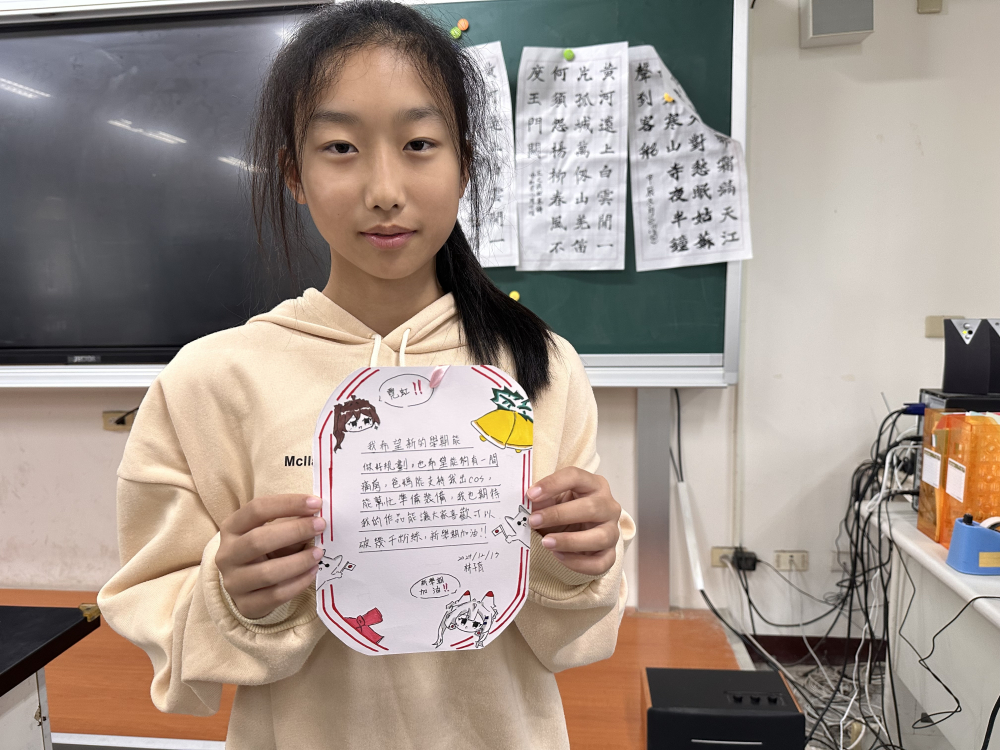 黃河遠上白雲間一
片孤城萬仞山羌笛
何須怨楊柳春風不
度玉門關
霜滿天江
對愁眠姑蘇
寒山寺夜半鐘
聲到客船
霓虹!!
我希望新的學期能
做好規劃，也希望能擁有一間
痛房，爸媽能支持我出cos，
能幫忙準備裝備，我也期待
我的作品能讓大家喜歡才以
破幾千粉絲，新學期加油!!
新學期
加油!!